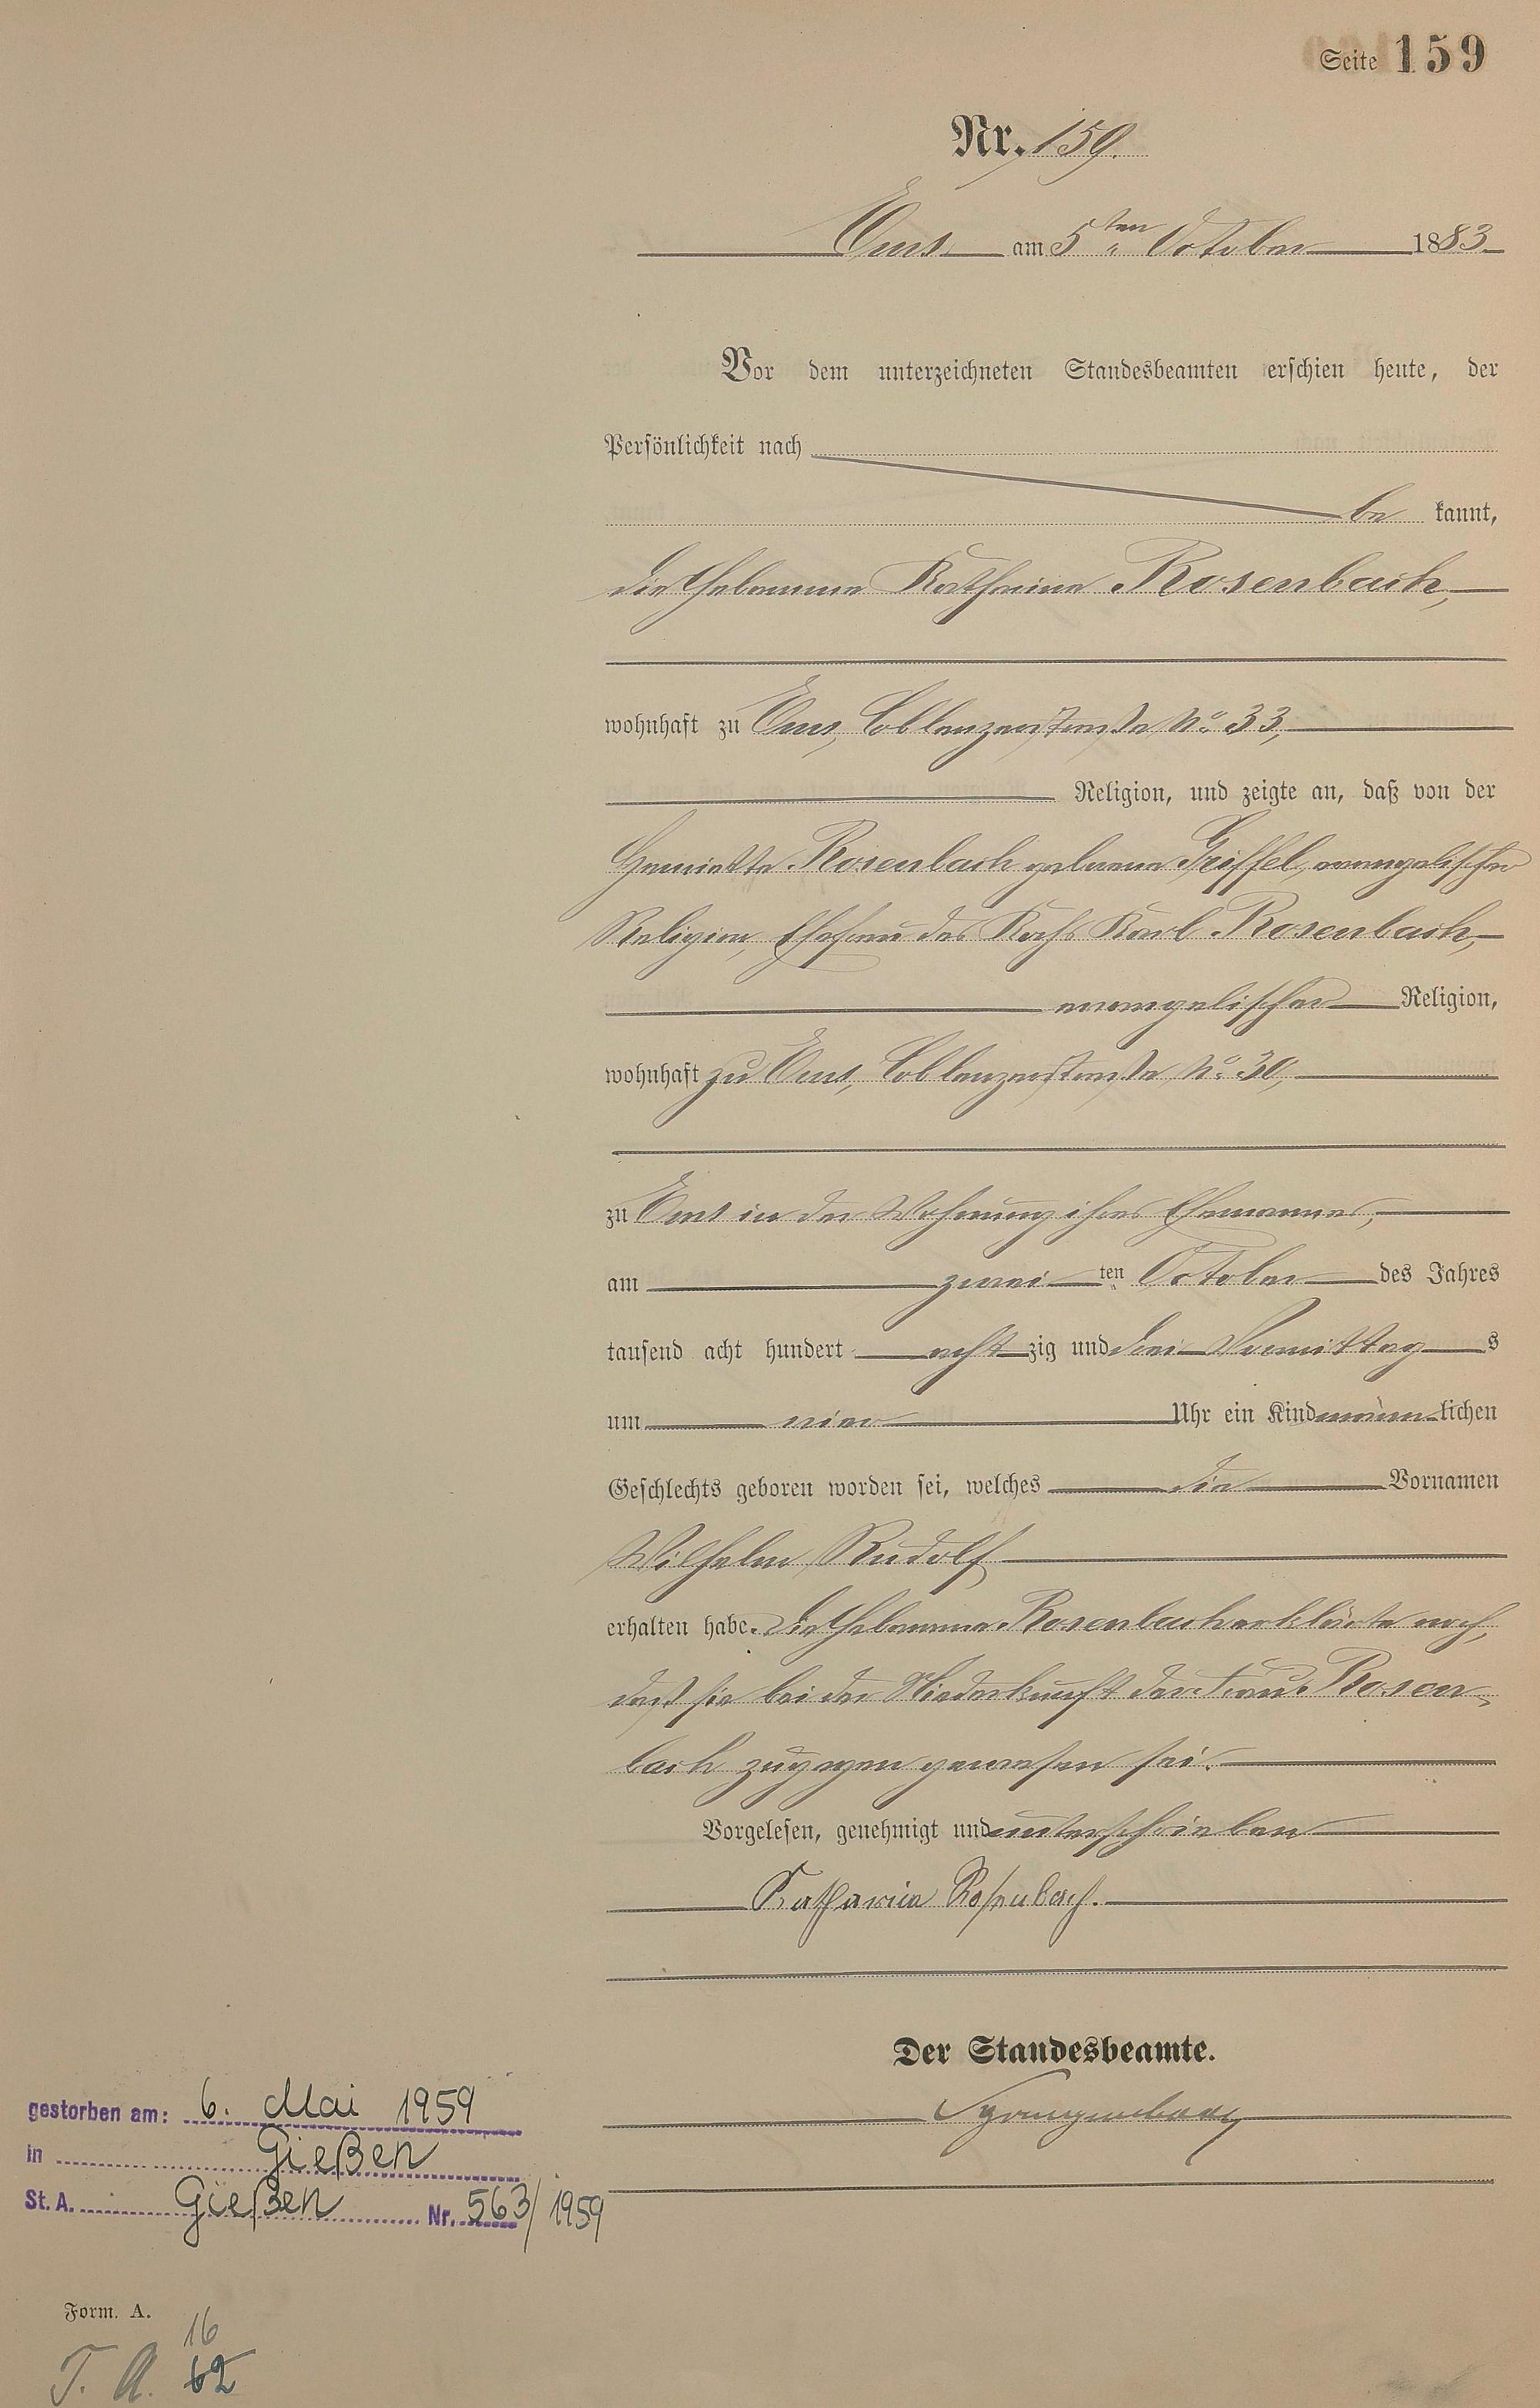 Seite 159
Nr. 159.
Ems am 5ten October 1883.
Vor dem unterzeichneten Standesbeamten erschien heute, der
Persönlichkeit nach
be kannt,
die Hebamme Katharina Rosenbach,
wohnhaft zu Ems, Coblenzerstraße No. 33,
Religion, und zeigte an, daß von der
Henriette Rosenbach geborene Griffel, evangelischer
Religion, Ehefrau des Kochs Karl Rosenbach,
evangelischer Religion,
wohnhaft zu Ems, Coblenzerstraße No. 30,
zu Ems in der Wohnung ihres Ehemannes,
am zweiten October des Jahres
tausend acht hundert achtzig und drei Vormittags
um vier Uhr ein Kind männlichen
Geschlechts geboren worden sei, welches die Vornamen
Wilhelm Rudolf
erhalten habe. Die Hebamme Rosenbach erklärte noch,
daß sie bei der Niederkunft der Frau Rosen-
bach zugegen gewesen sei.
Vorgelesen, genehmigt und unterschrieben
Katharina Rosenbach.
Der Standesbeamte.
Spangenberg
gestorben am: 6. Mai 1959
in Gießen
St. A. Gießen Nr. 563/1959
Form. A.
16
T. A. 62